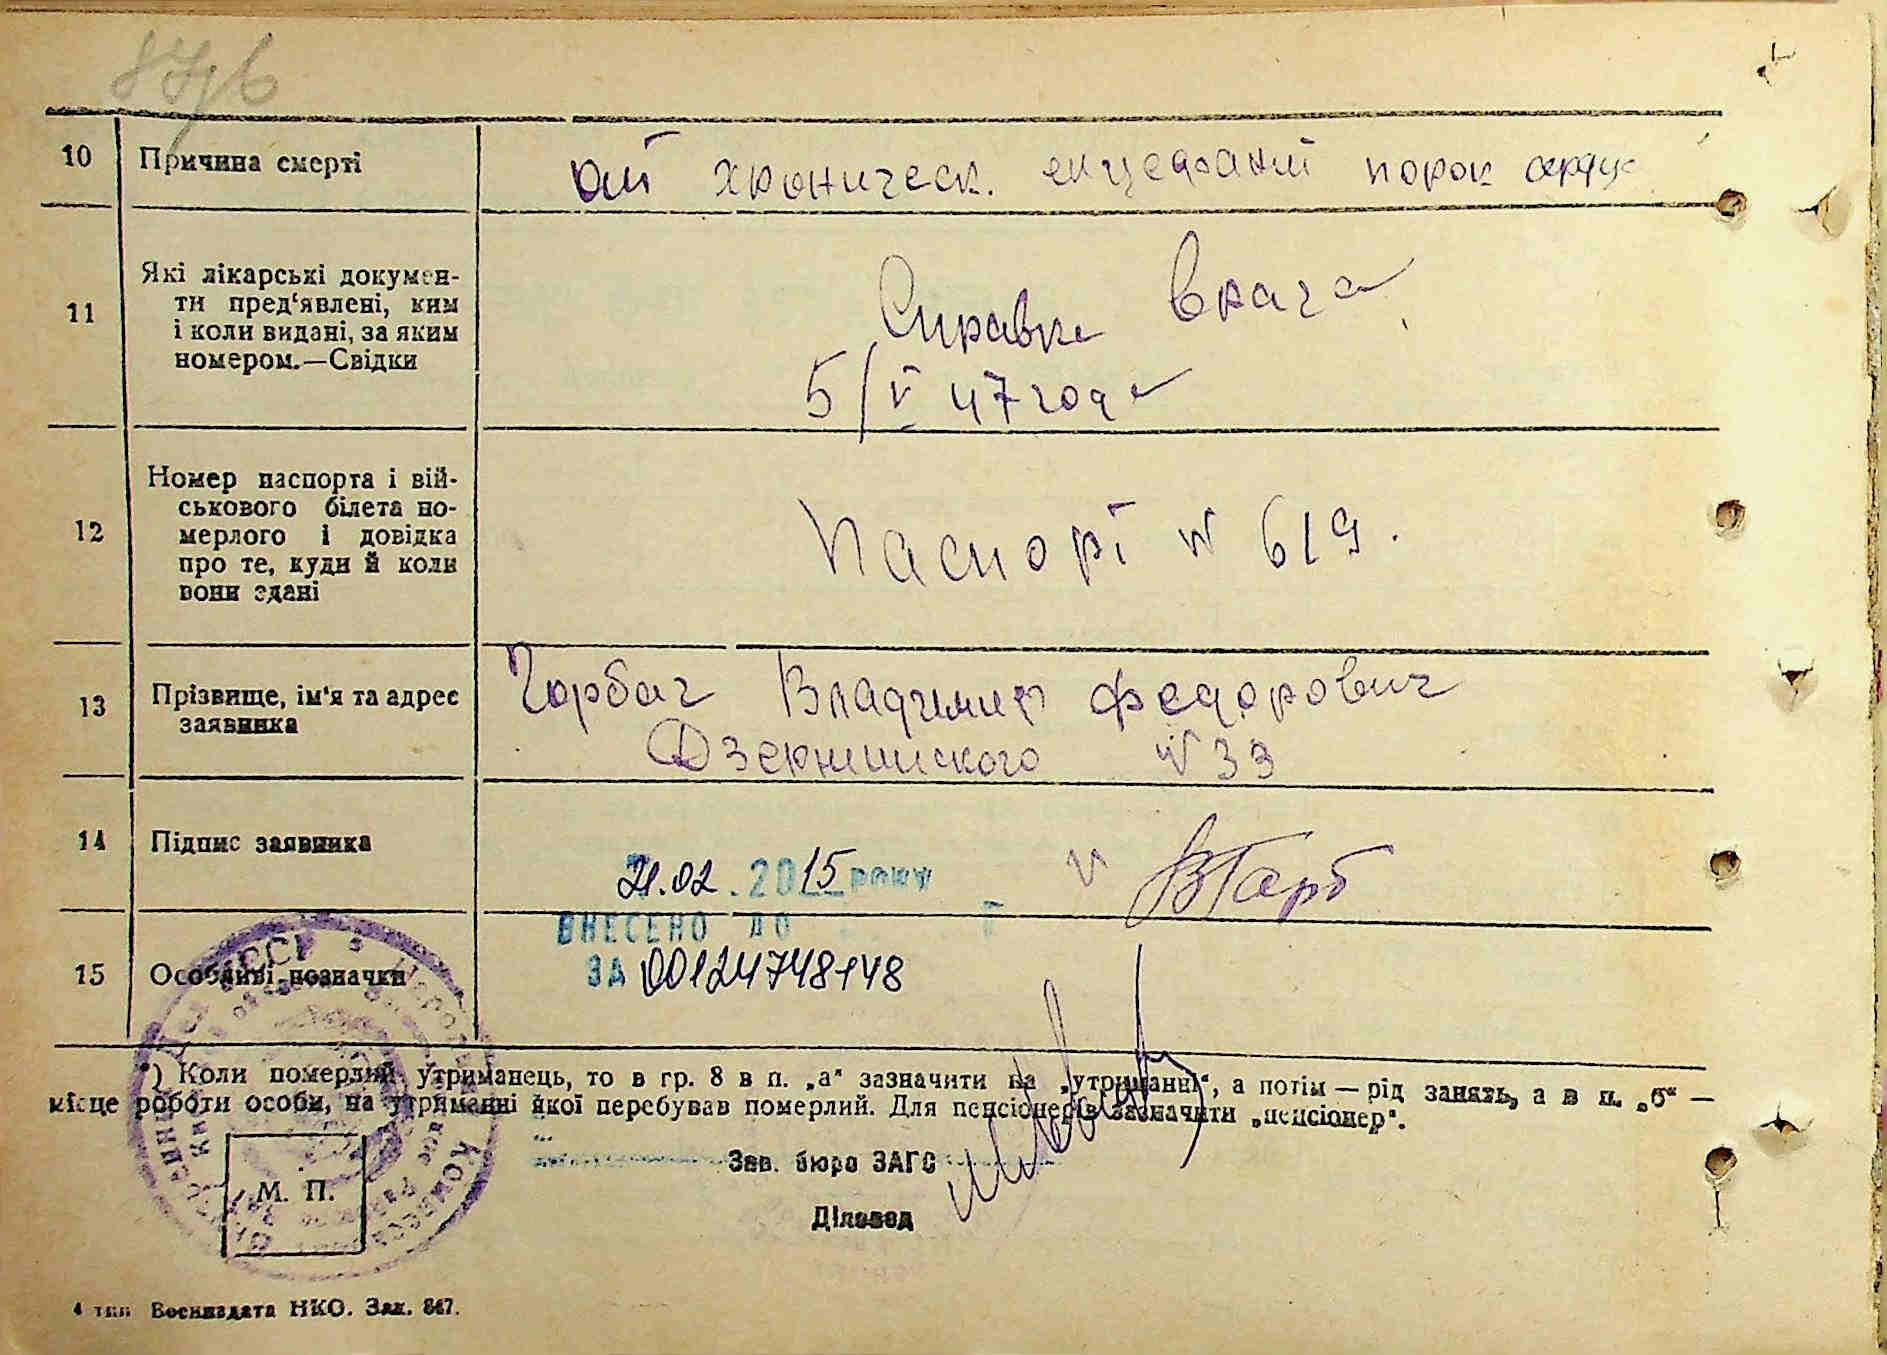 10 Причина смерті
от хроническ. енцефалит порок сердца
11 Які лікарські докумен-
ти пред‘явлені, ким
і коли видані, за яким
номером.—Свідки
Справка Врача
5/V 47 года
12 Номер паспорта і вій-
ськового білета по-
мерлого і довідка
про те, куди й коли
вони здані
Паспорт № 619.
13 Прізвище, ім‘я та адрес
заявника
Горбач Владимир Федорович
Дзержинского № 33
14 Підпис заявника
21.02.2015 року
V ВГорб
ВНЕСЕНО ДО
15 Особливі позначки
ЗА 00124748148
*) Коли померлий утриманець, то в гр. 8 в п. „а“ зазначити на „утриманні“, а потім — рід занять, а в п. „б“ —
місце роботи особи, на утриманні якої перебував померлий. Для пенсіонерів зазначити „пенсіонер“.
Зав. бюро ЗАГС
М. П.
Діловод
4 тип Воениздата НКО. Зак. 847.